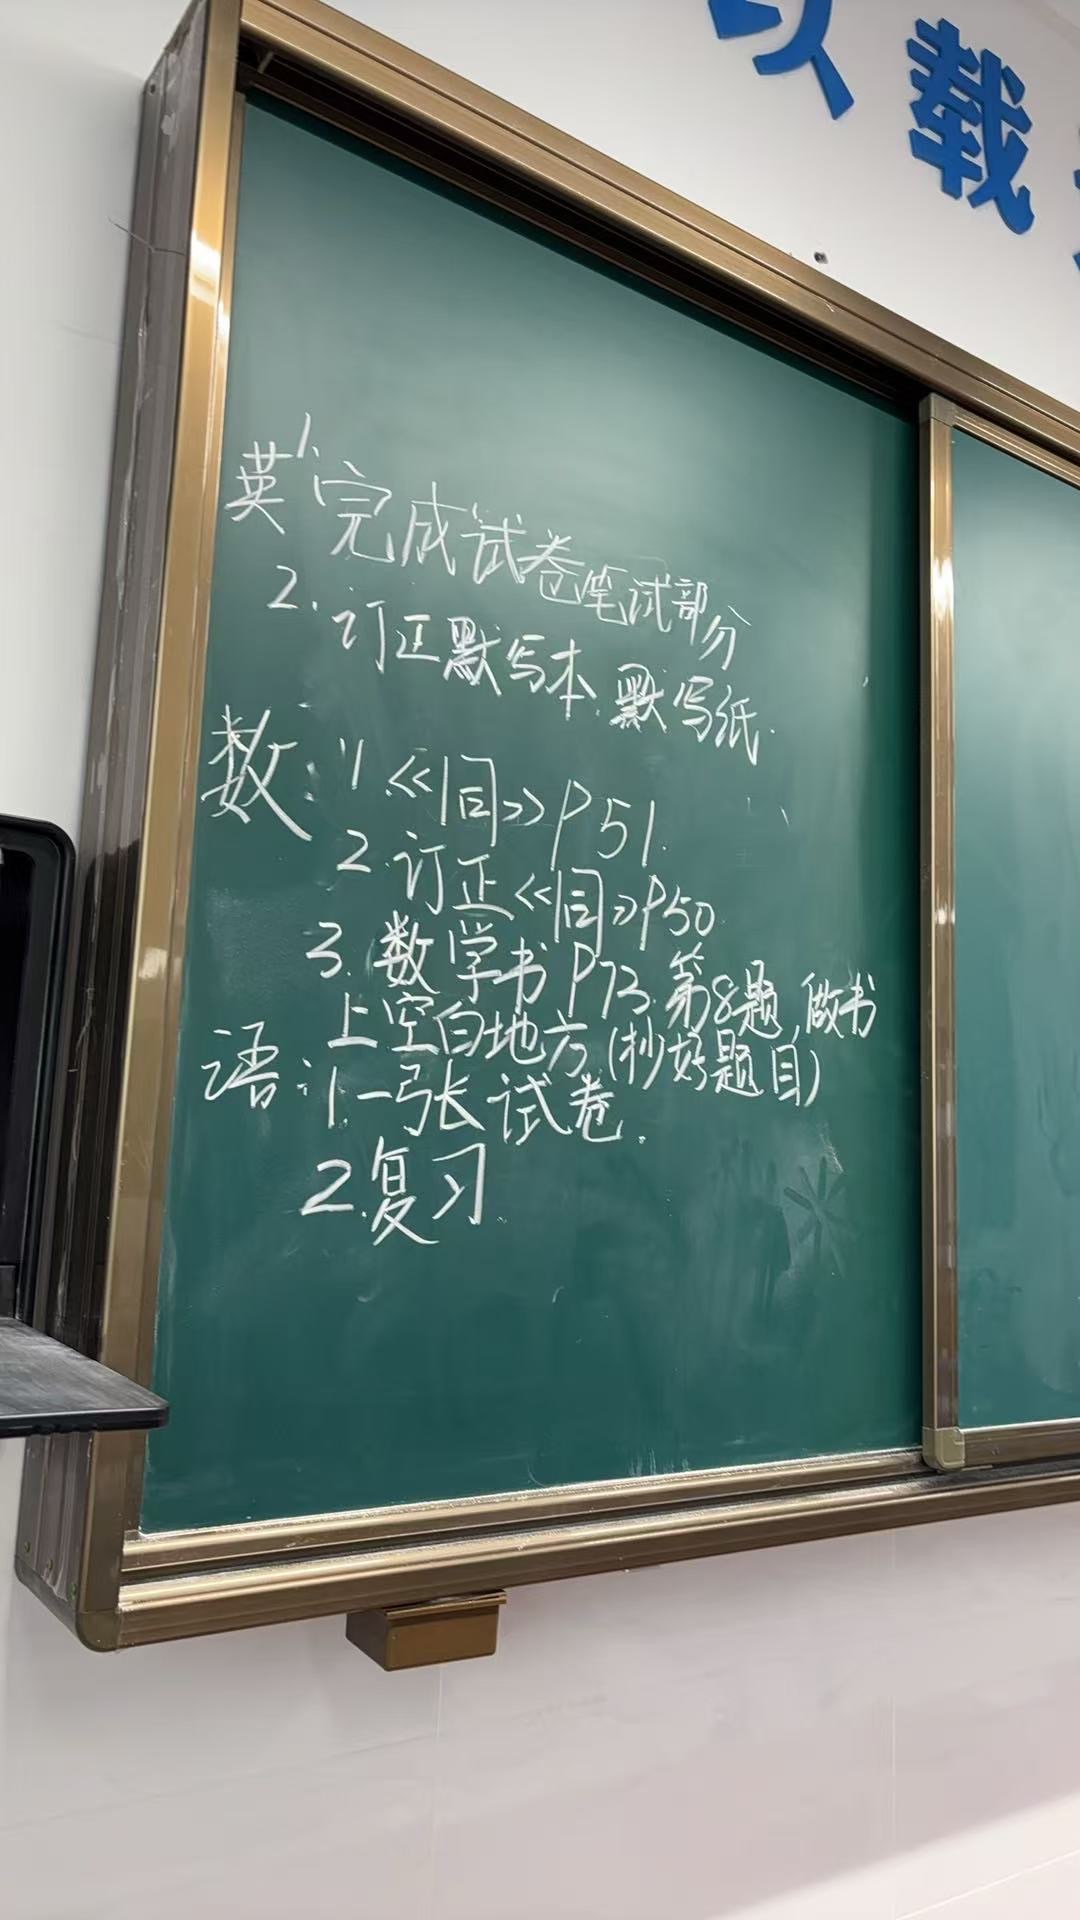 以载
英 1. 完成试卷笔试部分
2. 订正默写本、默写纸.
数: 1. 《同》P51.
2. 订正《同》P50
3. 数学书 P73. 第8题, 做书
上空白地方 (抄好题目)
语: 1. 一张试卷.
2. 复习.